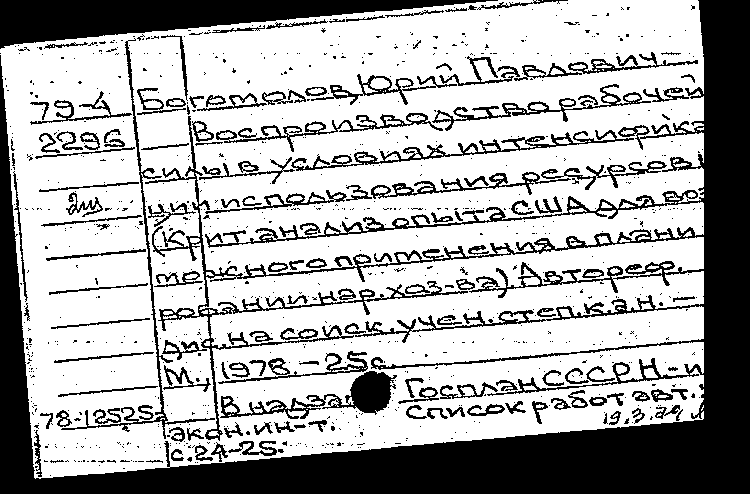 79-4 Богомолов, Юрий Павлович.
2296 Воспроизводство рабочей
силы в условиях интенсифика
2 ции использования ресурсов
(Крит. анализ опыта США для воз
можного применения в плани
ровании нар. хоз-ва) Автореф.
дис. на соиск. учен. степ. к.э.н. –
М., 1978. – 25 с.
В надзаг Госплан СССР Н.-и
78-12525
экон. ин-т. Список работ авт.:
с. 24-25. 19.3.79